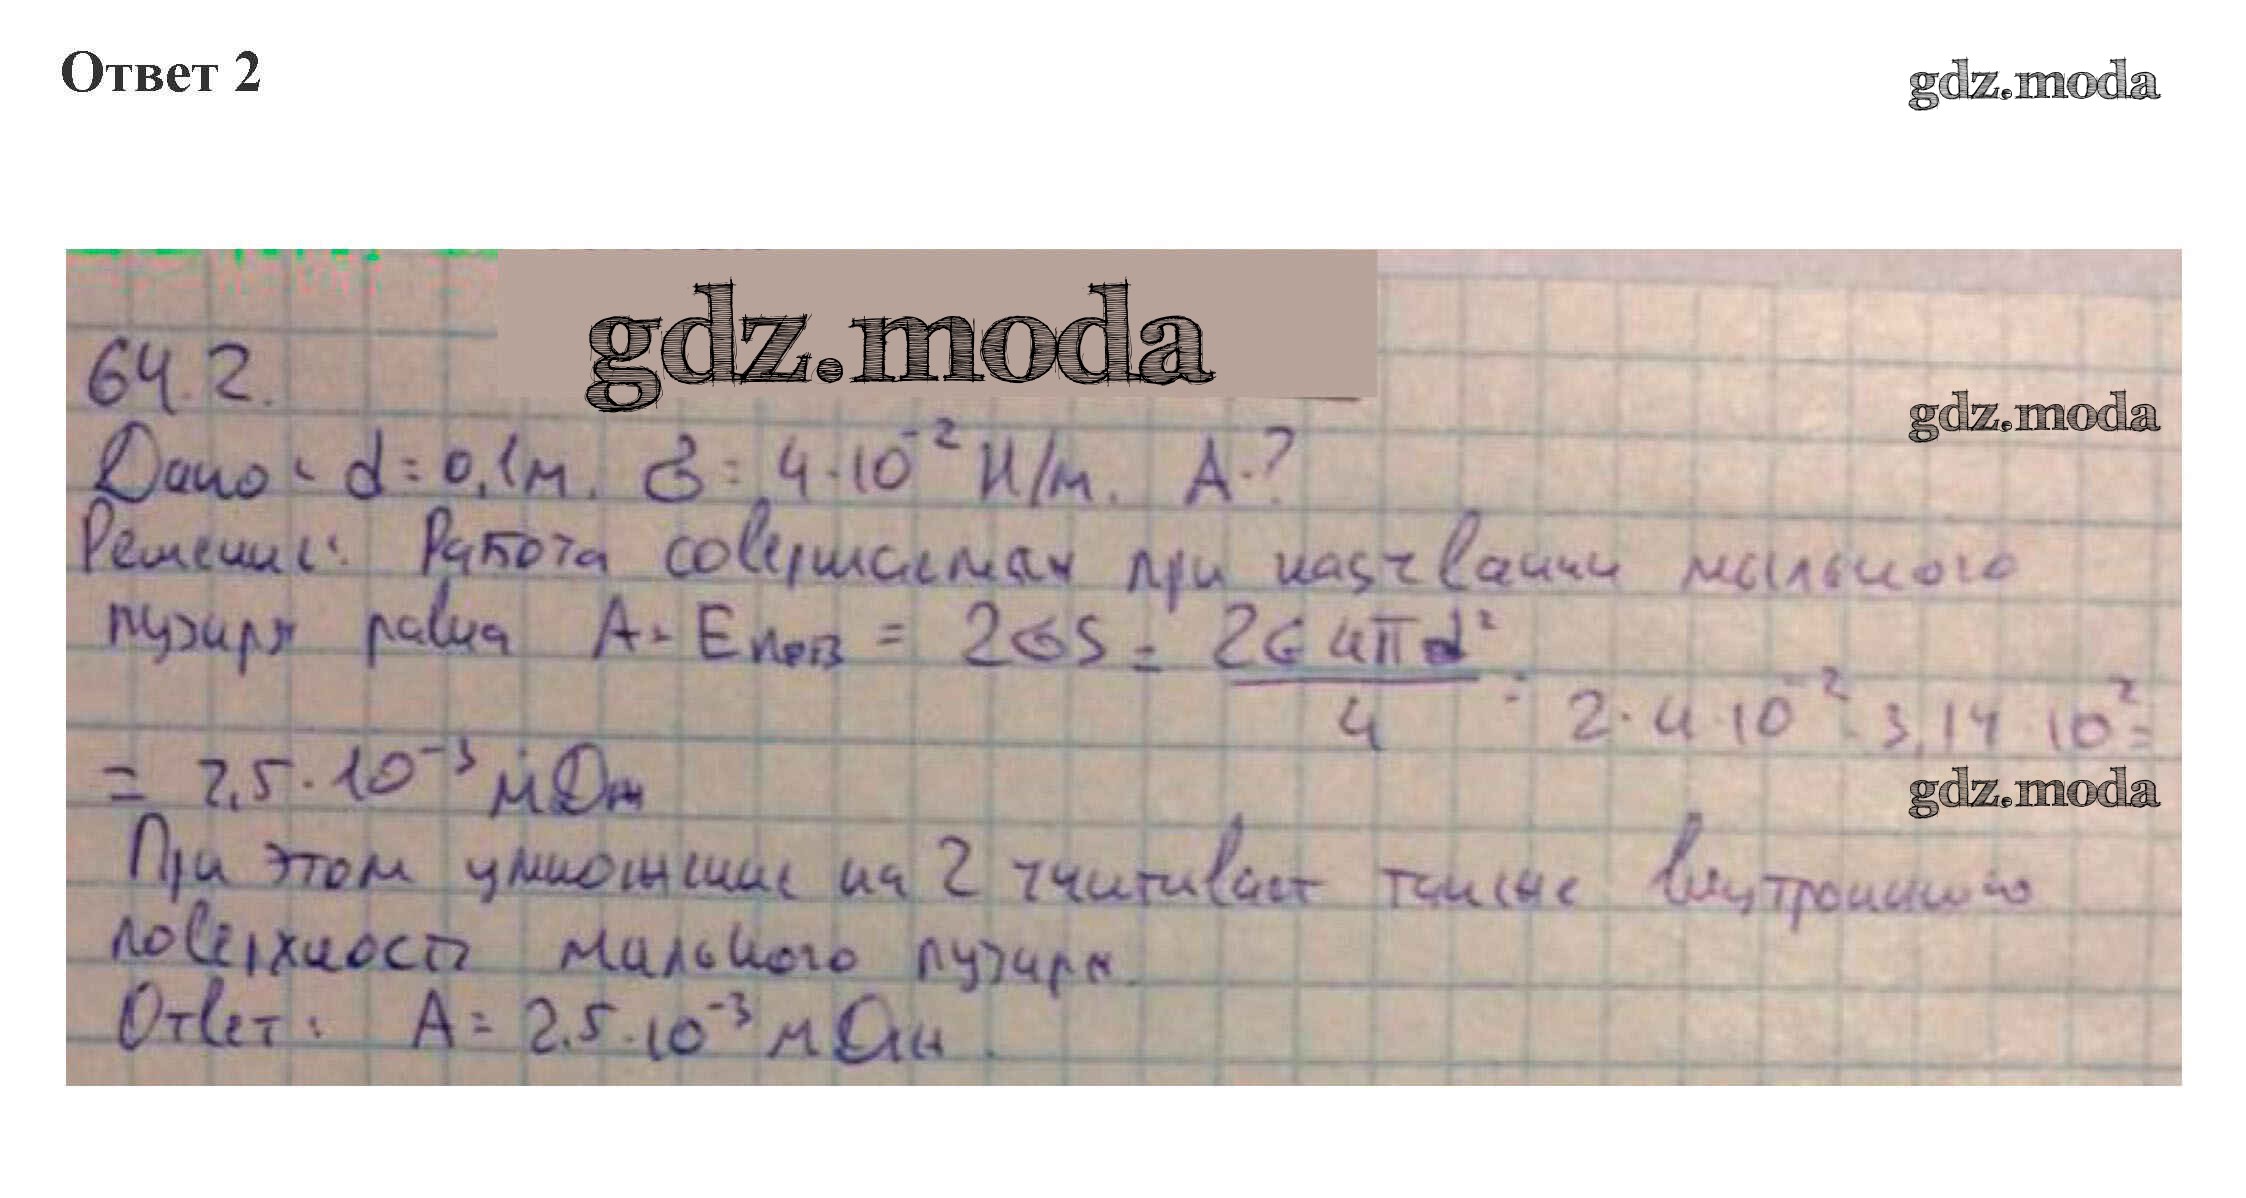 Ответ 2
gdz.moda
gdz.moda
64.2.
gdz.moda
Дано: d = 0,1м. σ = 4·10⁻² Н/м. A-?
Решение: Работа совершаемая при надувании мыльного
пузыря равна A = Eпов = 2σS = 2σ4πd²/4 = 2·4·10⁻²·3,14·10² =
= 2,5·10⁻³ мДж
gdz.moda
При этом умножение на 2 учитывает также внутреннюю
поверхность мыльного пузыря.
Ответ: A = 2,5·10⁻³ мДж.